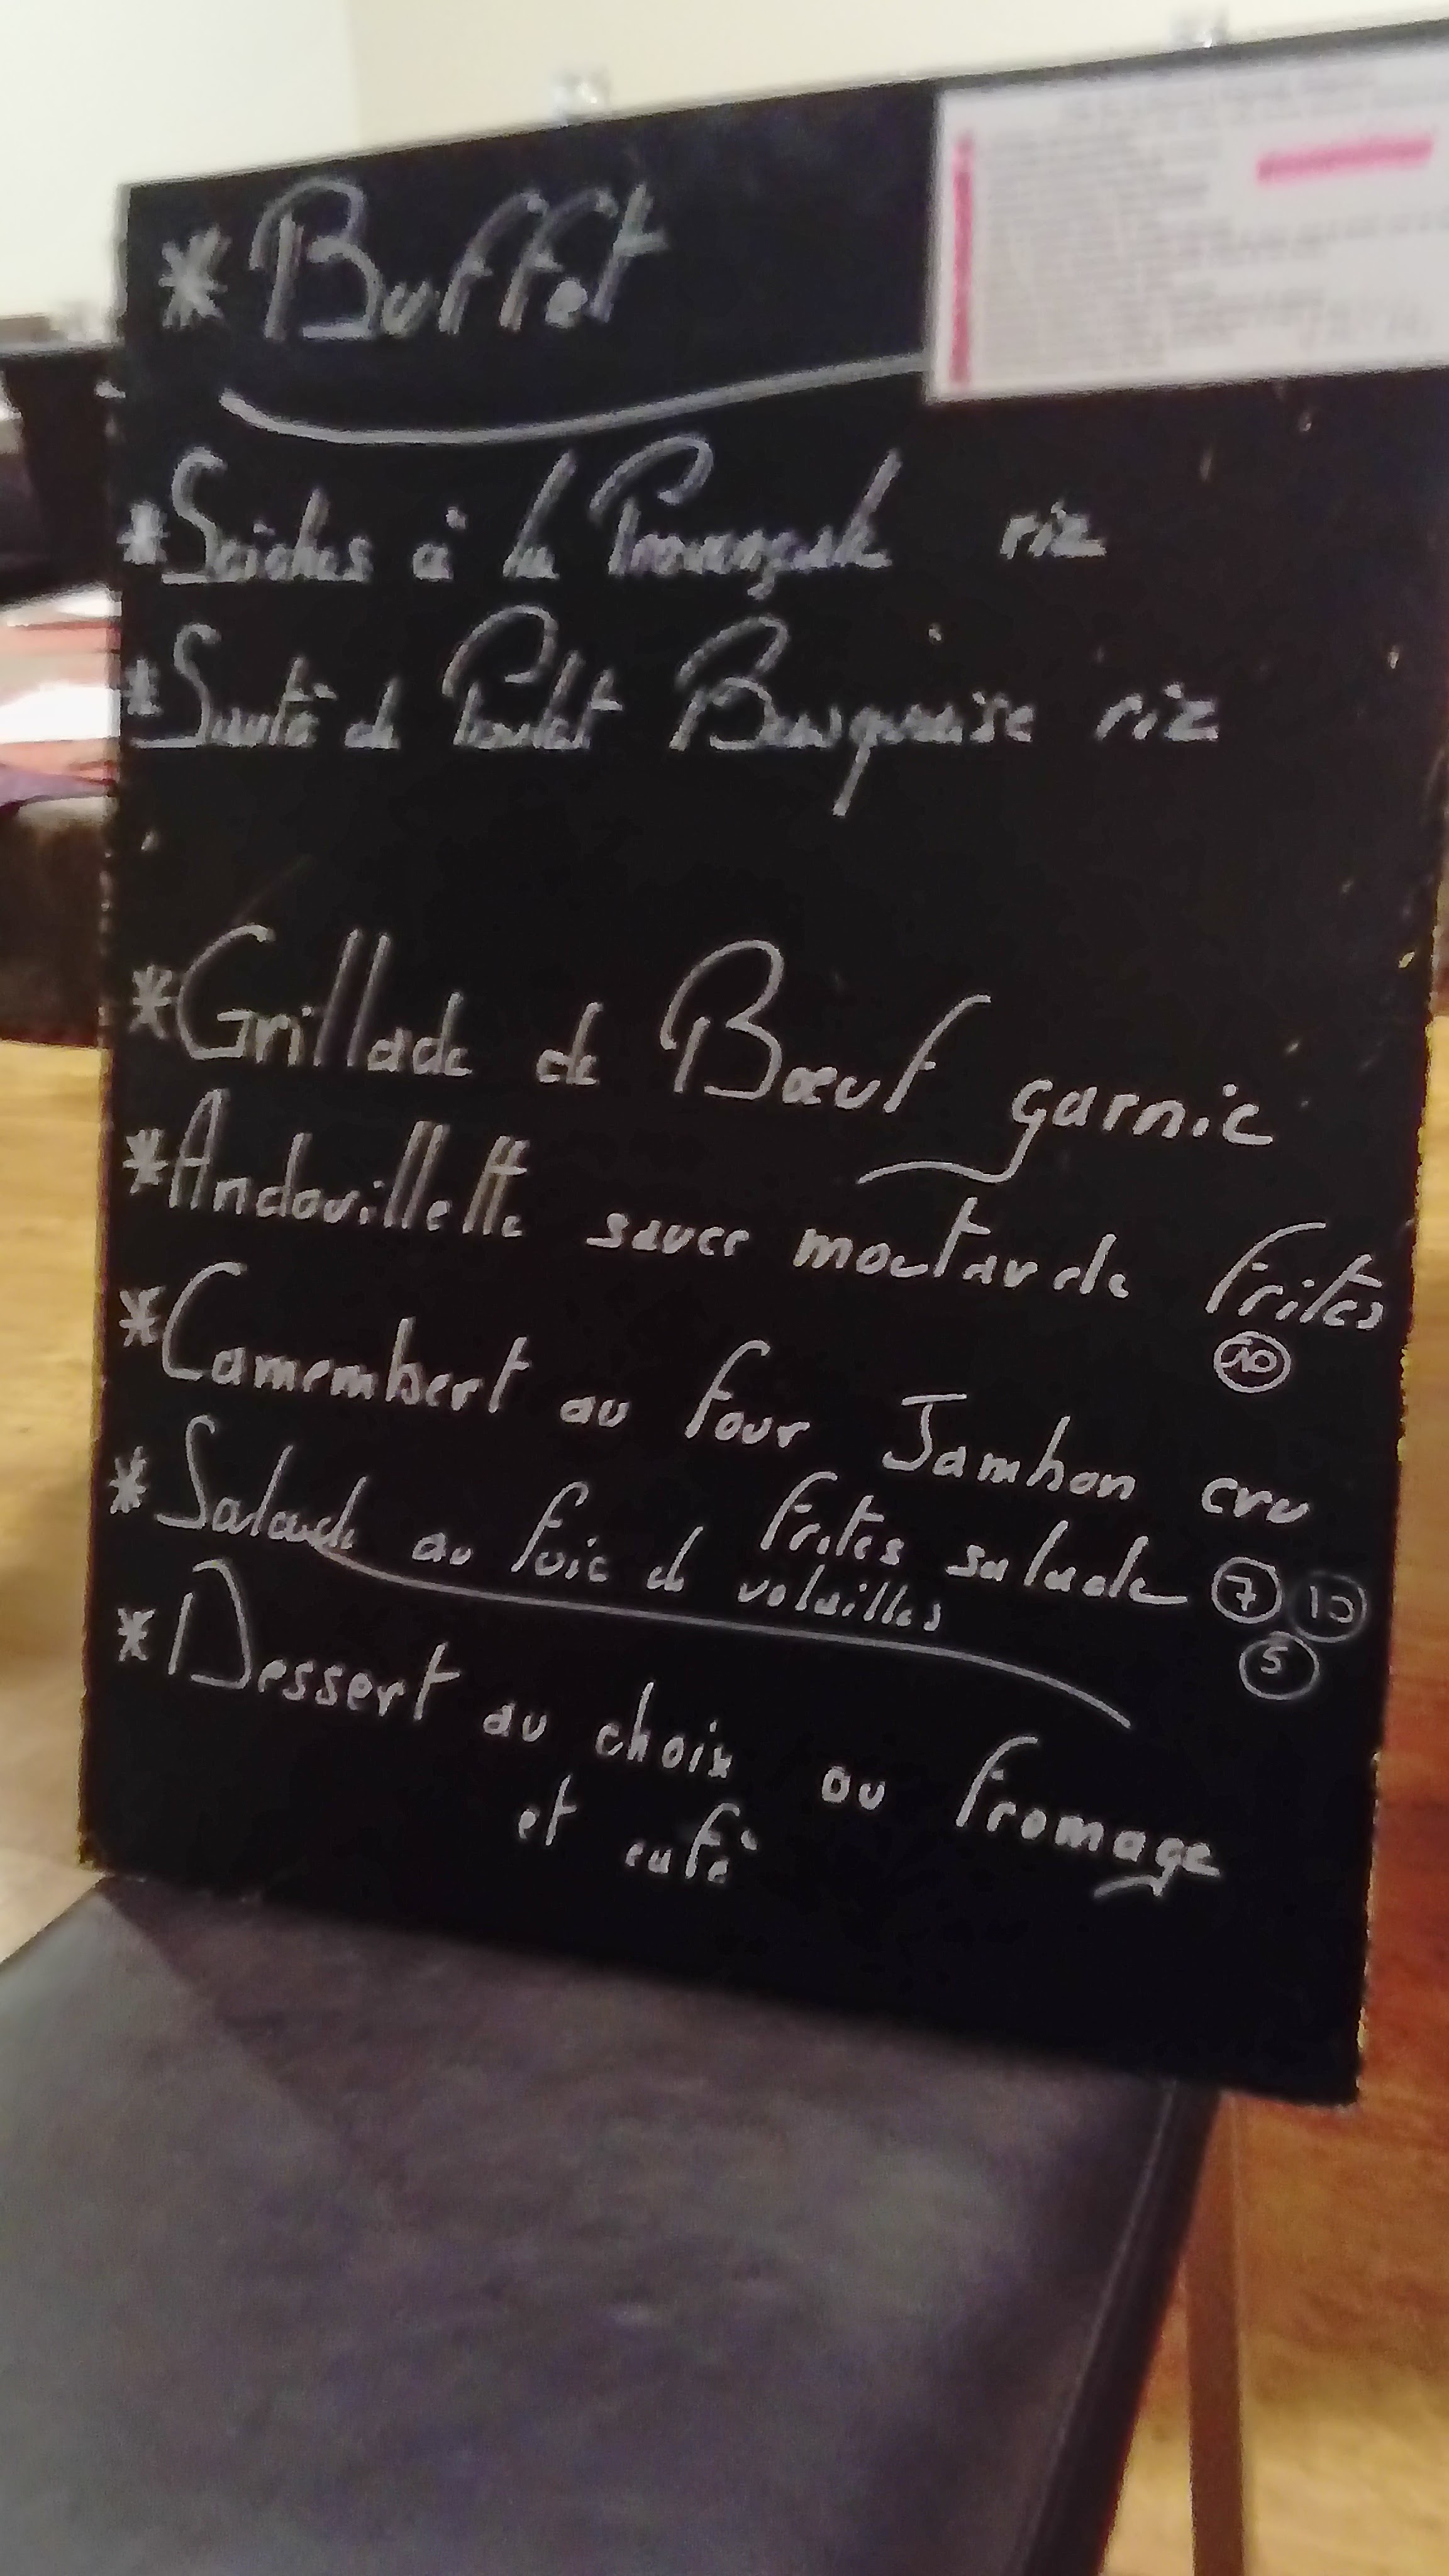 * Buffet
* Seiches à la Provençale riz
* Sauté de Poulet Basquaise riz
* Grillade de Bœuf garnie
* Andouillette sauce moutarde Frites
10
* Camembert au four Jambon cru
Frites salade 7 10
* Salade au foie de volailles
5
* Dessert au choix ou fromage
et café